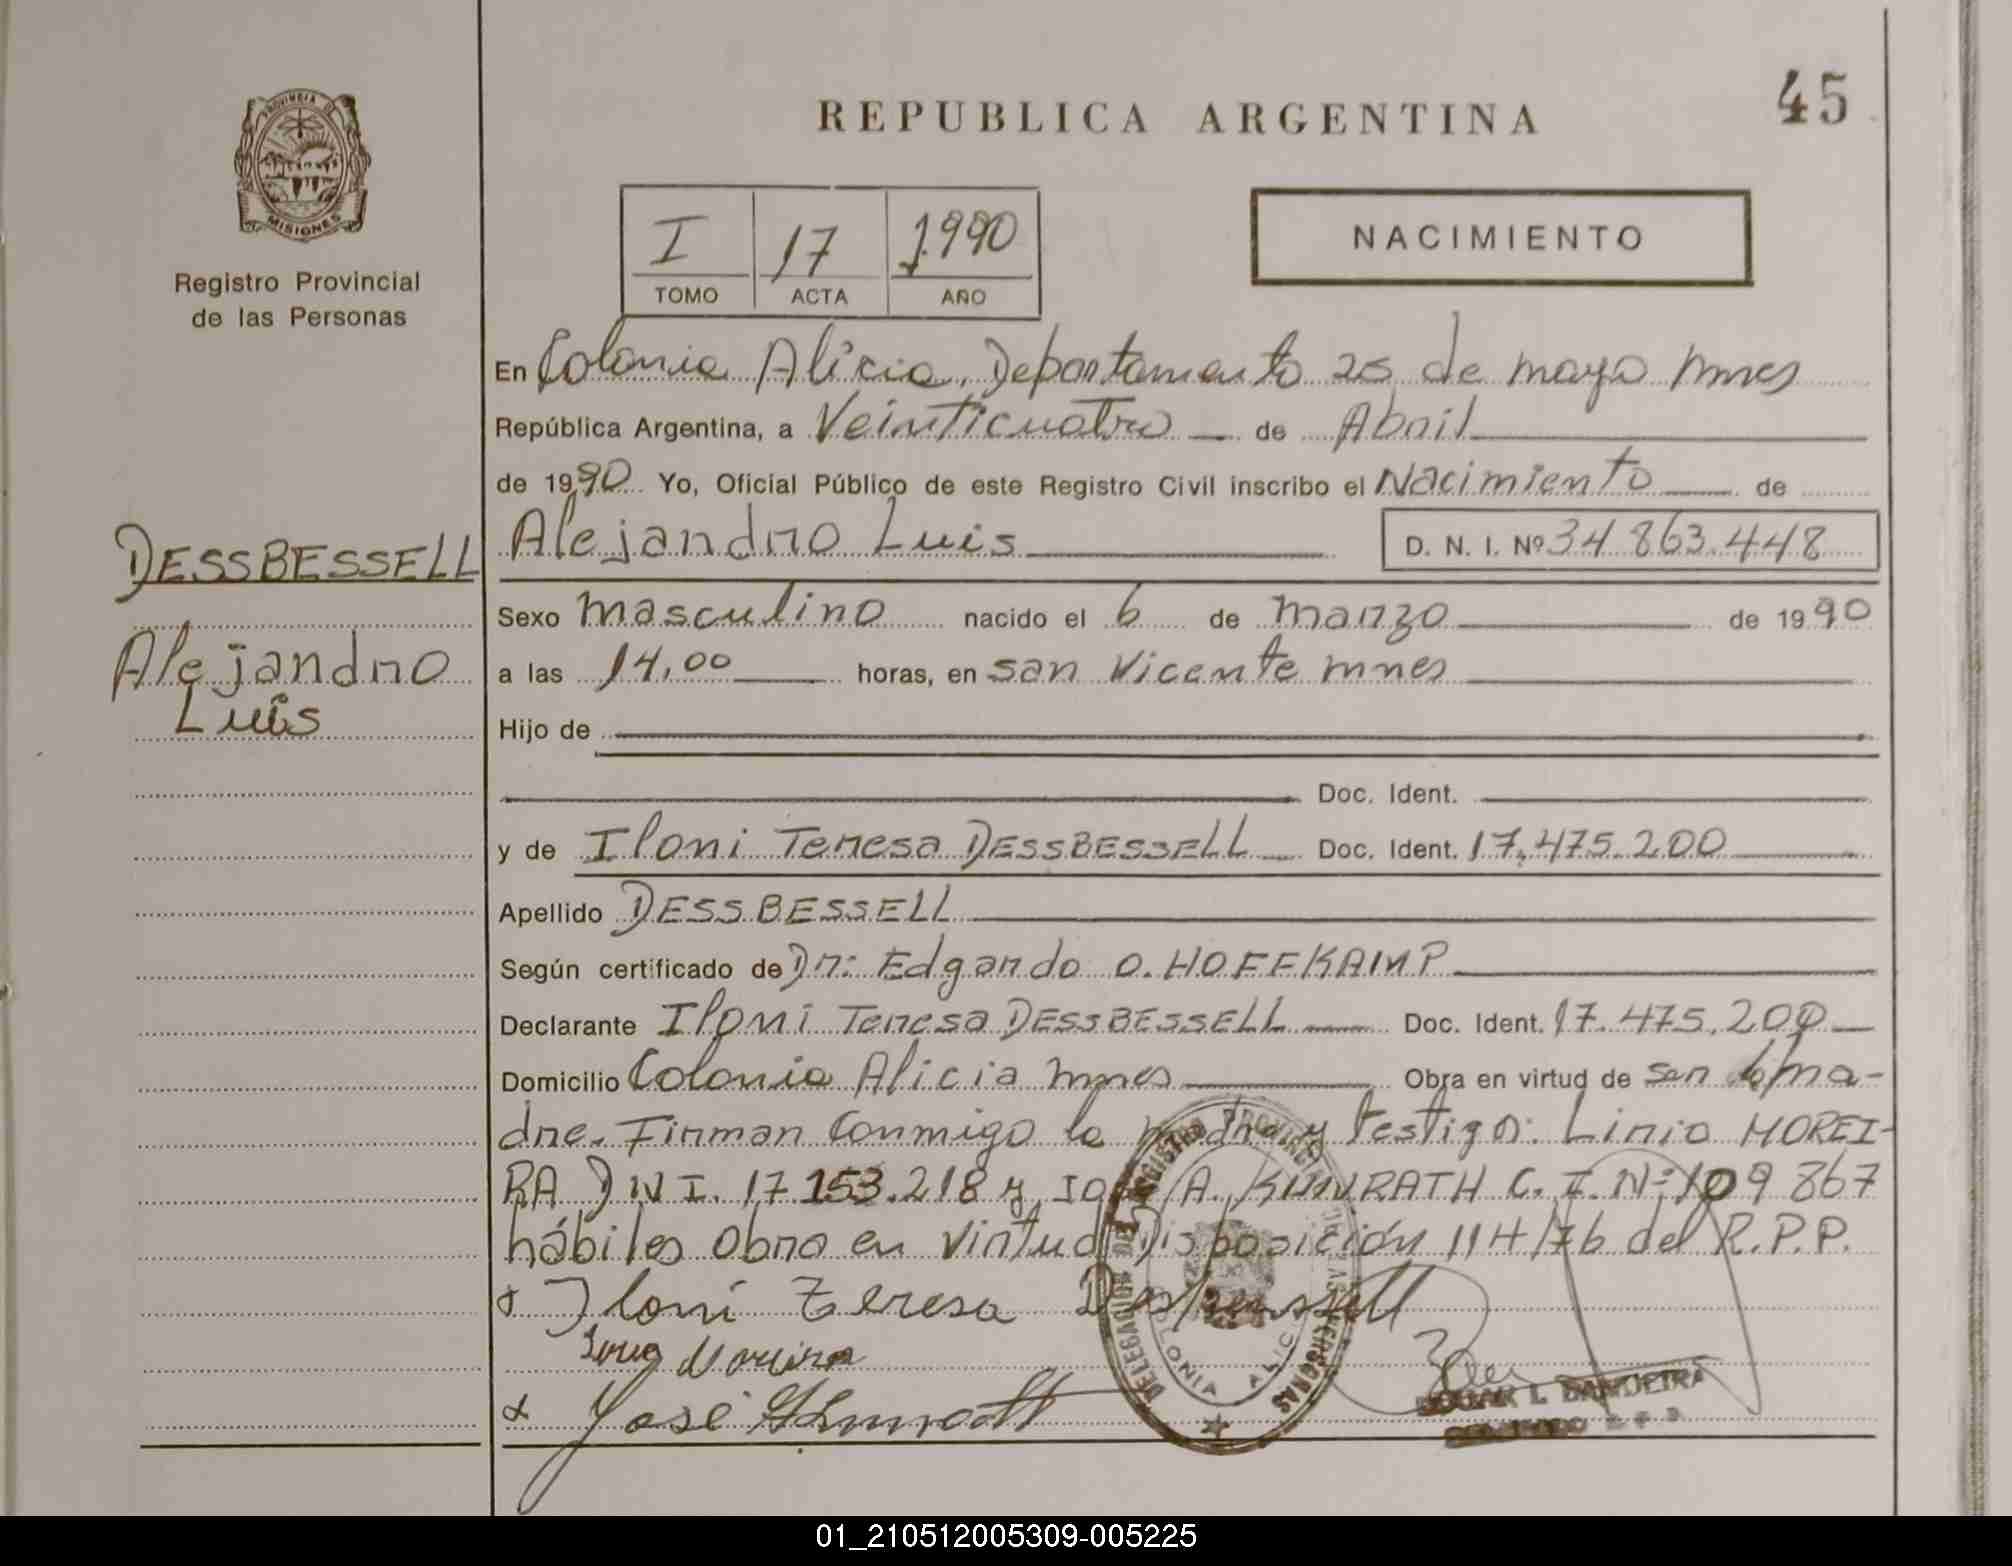 REPUBLICA ARGENTINA
45
PROVINCIA DE
MISIONES
Registro Provincial
de las Personas
I 17 1990
TOMO ACTA AÑO
NACIMIENTO
En Colonia Alicia, Departamento 25 de mayo Mnes
República Argentina, a Veinticuatro de Abril
de 1990 Yo, Oficial Público de este Registro Civil inscribo el Nacimiento de
DESSBESSELL
Alejandro
Luis
Alejandro Luis D. N. I. Nº 34 863.448
Sexo masculino nacido el 6 de marzo de 1990
a las 14,00 horas, en san Vicente mnes
Hijo de
Doc. Ident.
y de Iloni Teresa DESSBESSELL Doc. Ident. 17.475.200
Apellido DESSBESSELL
Según certificado de Dr: Edgardo O. HOFFKAMP
Declarante Iloni Teresa DESSBESSELL Doc. Ident. 17.475.200
Domicilio Colonia Alicia mnes Obra en virtud de ser la ma-
dre. Firman Conmigo la madre y testigo: Lirio MOREI-
RA DNI. 17 153.218 y A. KUNRATH C. I. Nº 109 867
hábiles obro en virtud Disposición 114/76 del R.P.P.
Iloni Teresa Dessbessell
Moreira
José
DELEGADO
REGISTRO PROVINCIAL DE LAS PERSONAS
COLONIA ALICIA
BANDEIRA
01_210512005309-005225